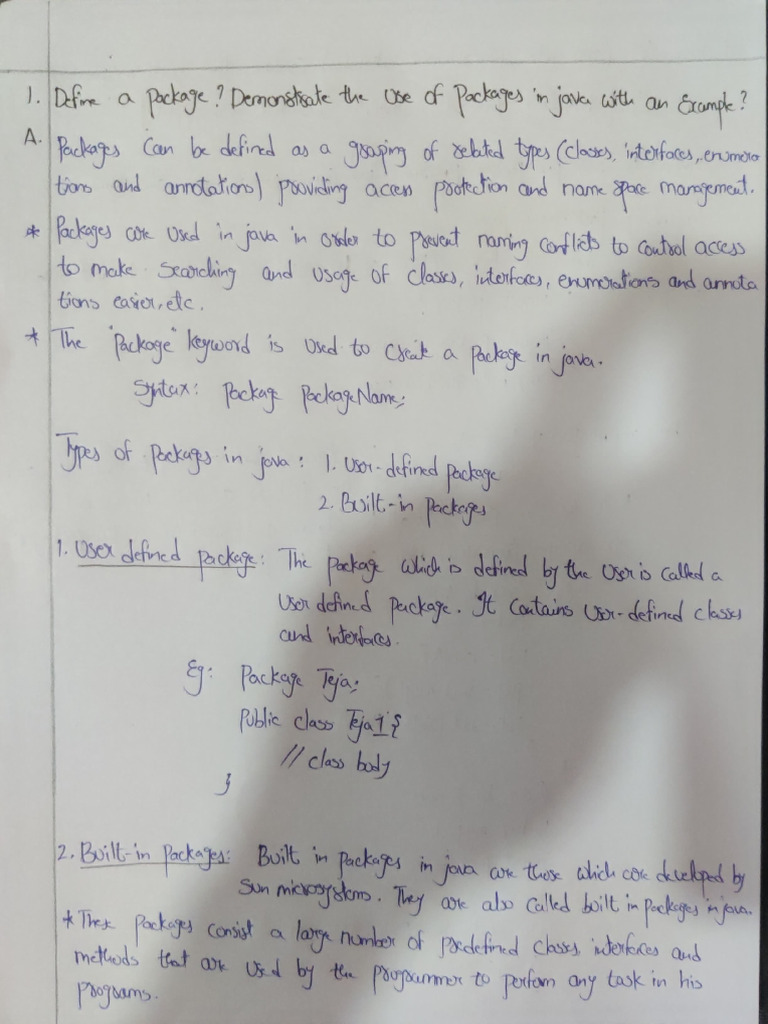 1. Define a package? Demonstrate the use of packages in java with an Example?
A. Packages can be defined as a grouping of related types (classes, interfaces, enumera
tions and annotations) providing access protection and name space management.
* Packages are used in java in order to prevent naming conflicts to control access
to make searching and usage of classes, interfaces, enumerations and annota
tions easier, etc.
* The "Package" keyword is used to create a package in java.
Syntax: Package PackageName;
Types of packages in java: 1. User-defined package
2. Built-in packages
1. User defined package: The package which is defined by the user is called a
User defined package. It contains user-defined classes
and interfaces.
Eg: Package Teja;
Public class Teja1{
// class body
}
2. Built-in packages: Built in packages in java are those which are developed by
Sun microsystems. They are also called built in packages in java.
* These packages consist a large number of predefined classes, interfaces and
methods that are used by the programmer to perform any task in his
programs.